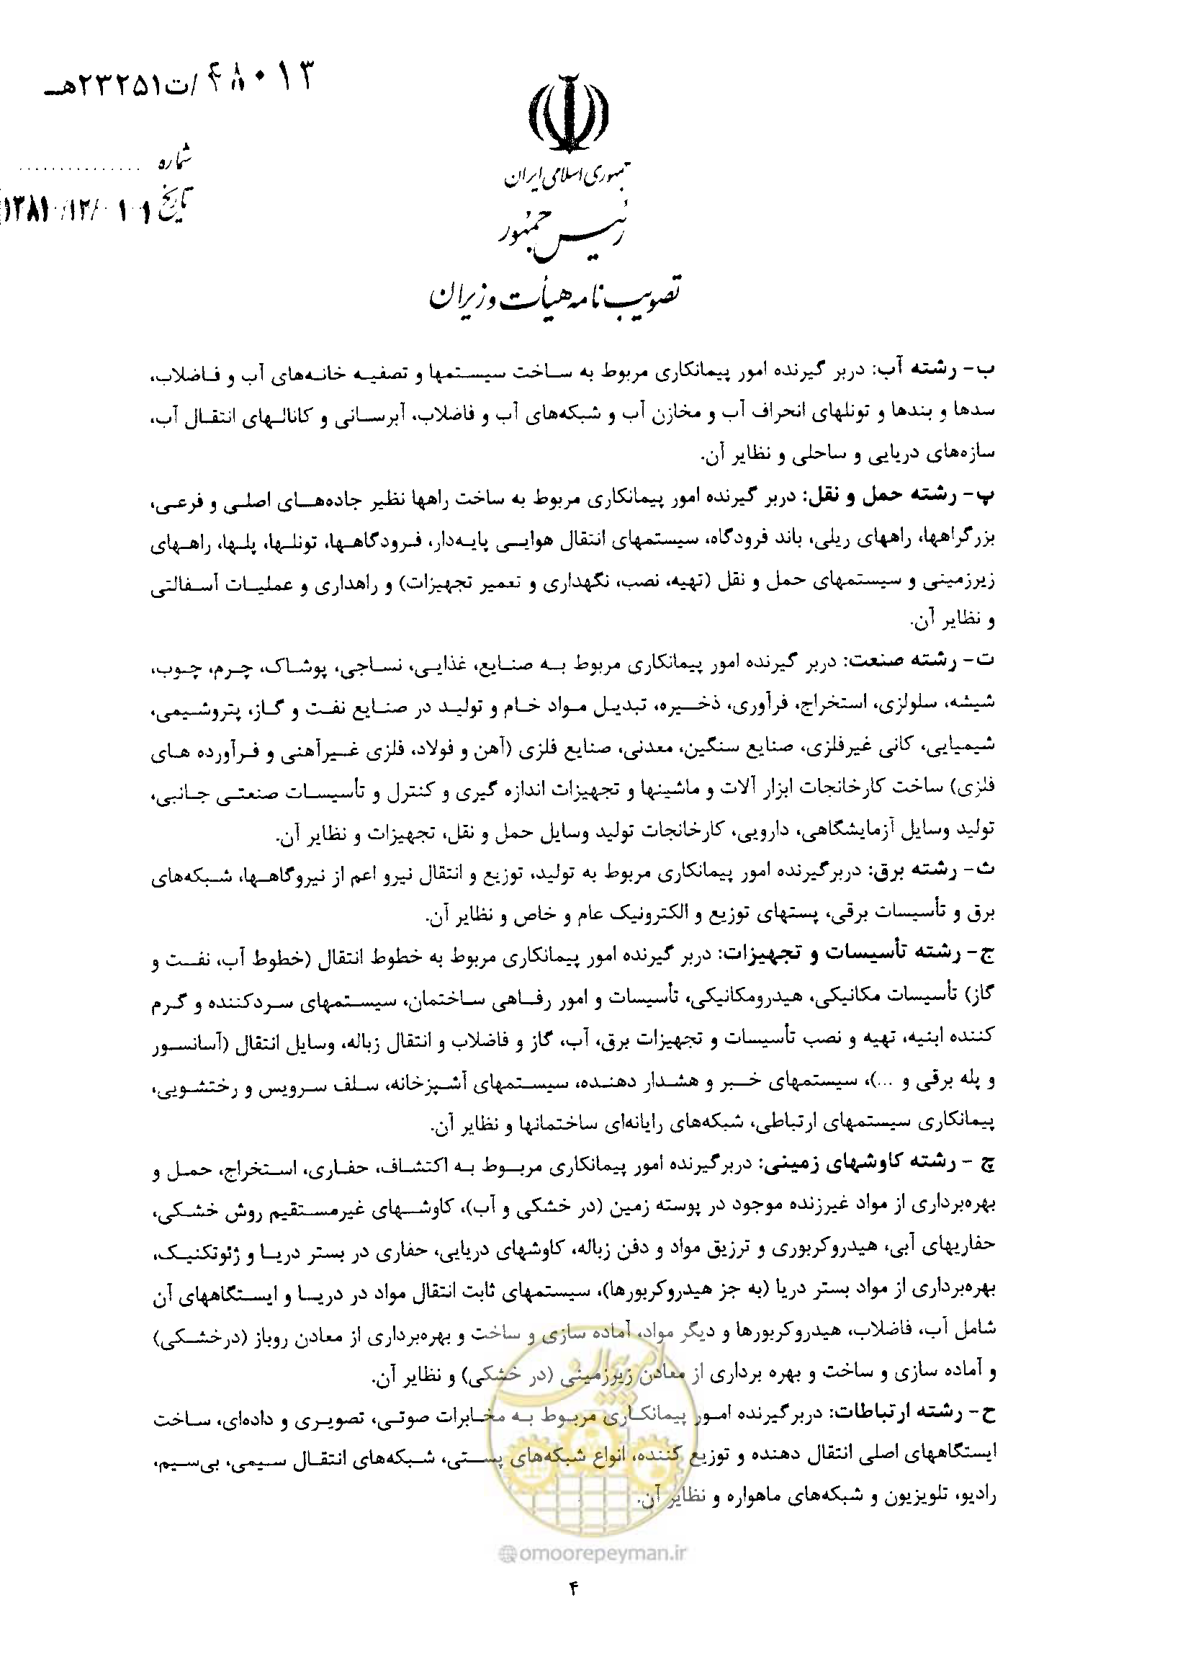 ۴۸۰۱۳/ت۲۳۲۵۱هـ
شماره ................
تاریخ ۱۳۸۱/۱۲/۰۱
جمهوری اسلامی ایران
رئیس جمهور
تصویب نامه هیأت وزیران
ب- رشته آب: دربر گیرنده امور پیمانکاری مربوط به ساخت سیستمها و تصفیه خانه‌های آب و فاضلاب،
سدها و بندها و تونلهای انحراف آب و مخازن آب و شبکه‌های آب و فاضلاب، آبرسانی و کانالهای انتقال آب،
سازه‌های دریایی و ساحلی و نظایر آن.
پ- رشته حمل و نقل: دربر گیرنده امور پیمانکاری مربوط به ساخت راهها نظیر جاده‌های اصلی و فرعی،
بزرگراهها، راههای ریلی، باند فرودگاه، سیستمهای انتقال هوایی پایه‌دار، فرودگاهها، تونلها، پلها، راههای
زیرزمینی و سیستمهای حمل و نقل (تهیه، نصب، نگهداری و تعمیر تجهیزات) و راهداری و عملیات آسفالتی
و نظایر آن.
ت- رشته صنعت: دربر گیرنده امور پیمانکاری مربوط به صنایع، غذایی، نساجی، پوشاک، چرم، چوب،
شیشه، سلولزی، استخراج، فرآوری، ذخیره، تبدیل مواد خام و تولید در صنایع نفت و گاز، پتروشیمی،
شیمیایی، کانی غیرفلزی، صنایع سنگین، معدنی، صنایع فلزی (آهن و فولاد، فلزی غیرآهنی و فرآورده های
فلزی) ساخت کارخانجات ابزار آلات و ماشینها و تجهیزات اندازه گیری و کنترل و تأسیسات صنعتی جانبی،
تولید وسایل آزمایشگاهی، دارویی، کارخانجات تولید وسایل حمل و نقل، تجهیزات و نظایر آن.
ث- رشته برق: دربرگیرنده امور پیمانکاری مربوط به تولید، توزیع و انتقال نیرو اعم از نیروگاهها، شبکه‌های
برق و تأسیسات برقی، پستهای توزیع و الکترونیک عام و خاص و نظایر آن.
ج- رشته تأسیسات و تجهیزات: دربر گیرنده امور پیمانکاری مربوط به خطوط انتقال (خطوط آب، نفت و
گاز) تأسیسات مکانیکی، هیدرومکانیکی، تأسیسات و امور رفاهی ساختمان، سیستمهای سردکننده و گرم
کننده ابنیه، تهیه و نصب تأسیسات و تجهیزات برق، آب، گاز و فاضلاب و انتقال زباله، وسایل انتقال (آسانسور
و پله برقی و ...)، سیستمهای خبر و هشدار دهنده، سیستمهای آشپزخانه، سلف سرویس و رختشویی،
پیمانکاری سیستمهای ارتباطی، شبکه‌های رایانه‌ای ساختمانها و نظایر آن.
چ - رشته کاوشهای زمینی: دربرگیرنده امور پیمانکاری مربوط به اکتشاف، حفاری، استخراج، حمل و
بهره‌برداری از مواد غیرزنده موجود در پوسته زمین (در خشکی و آب)، کاوشهای غیرمستقیم روش خشکی،
حفاریهای آبی، هیدروکربوری و تزریق مواد و دفن زباله، کاوشهای دریایی، حفاری در بستر دریا و ژئوتکنیک،
بهره‌برداری از مواد بستر دریا (به جز هیدروکربورها)، سیستمهای ثابت انتقال مواد در دریا و ایستگاههای آن
شامل آب، فاضلاب، هیدروکربورها و دیگر مواد، آماده سازی و ساخت و بهره‌برداری از معادن روباز (درخشکی)
و آماده سازی و ساخت و بهره برداری از معادن زیرزمینی (در خشکی) و نظایر آن.
ح- رشته ارتباطات: دربرگیرنده امور پیمانکاری مربوط به مخابرات صوتی، تصویری و داده‌ای، ساخت
ایستگاههای اصلی انتقال دهنده و توزیع کننده، انواع شبکه‌های پستی، شبکه‌های انتقال سیمی، بی‌سیم،
رادیو، تلویزیون و شبکه‌های ماهواره و نظایر آن.
امور پیمان
omoorepeyman.ir
۴